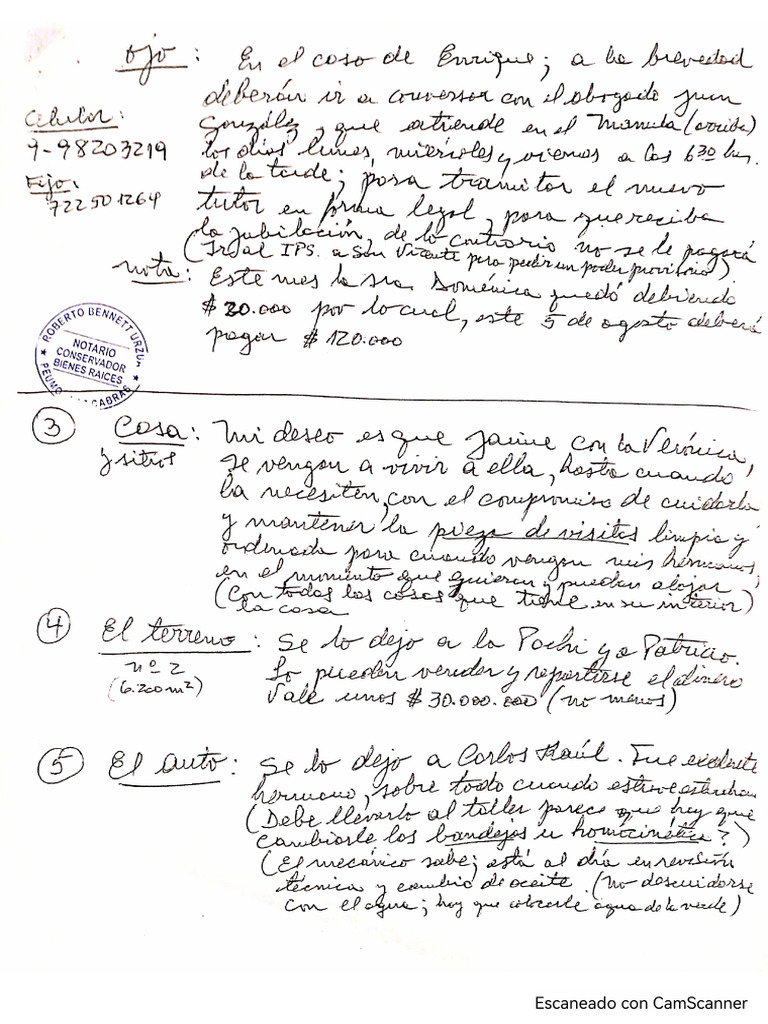 ojo : En el caso de Enrique; a la brevedad
deberán ir a conversar con el abogado Juan
Celular:
González y que atiende en el Manuela (arriba)
9-98203219
los días lunes, miércoles y viernes a las 6 30 hrs.
Fijo:
de la tarde; para tramitar el nuevo
722501264
tutor en forma legal, para que reciba
la jubilación, de lo contrario no se le pagará
(Ir al IPS. a San Vicente para pedir un poder provisorio)
nota: Este mes la sra. Doménica quedó debiendo
$ 20.000 por lo cual, este 5 de agosto deberá
pagar $ 120.000
ROBERTO BENNETT URZUA
NOTARIO
CONSERVADOR
BIENES RAICES
PEUMO CABRAS
3 Casa: Mi deseo es que Jaime con la Verónica,
y sitios se vengan a vivir a ella, hasta cuando
la necesiten, con el compromiso de cuidarla
y mantener la pieza de visitas limpia y
ordenada para cuando vengan mis hermanos,
en el momento que quieran y puedan alojar
(Con todas las cosas que tiene en su interior)
la casa
4 El terreno : Se lo dejo a la Pochi y a Patricio.
nº 2 Lo pueden vender y repartirse el dinero
(6.200 m²) Vale unos $ 30.000.000 (no menos)
5 El auto : Se lo dejo a Carlos Raúl. Fue excelente
hermano, sobre todo cuando estuve
(Debe llevarlo al taller parece que hay que
cambiarle las bandejas u homocinética?)
(El mecánico sabe; está al día en revisión
técnica y cambio de aceite. (no descuidarse
con el agua; hay que colocarle agua de la verde)
Escaneado con CamScanner